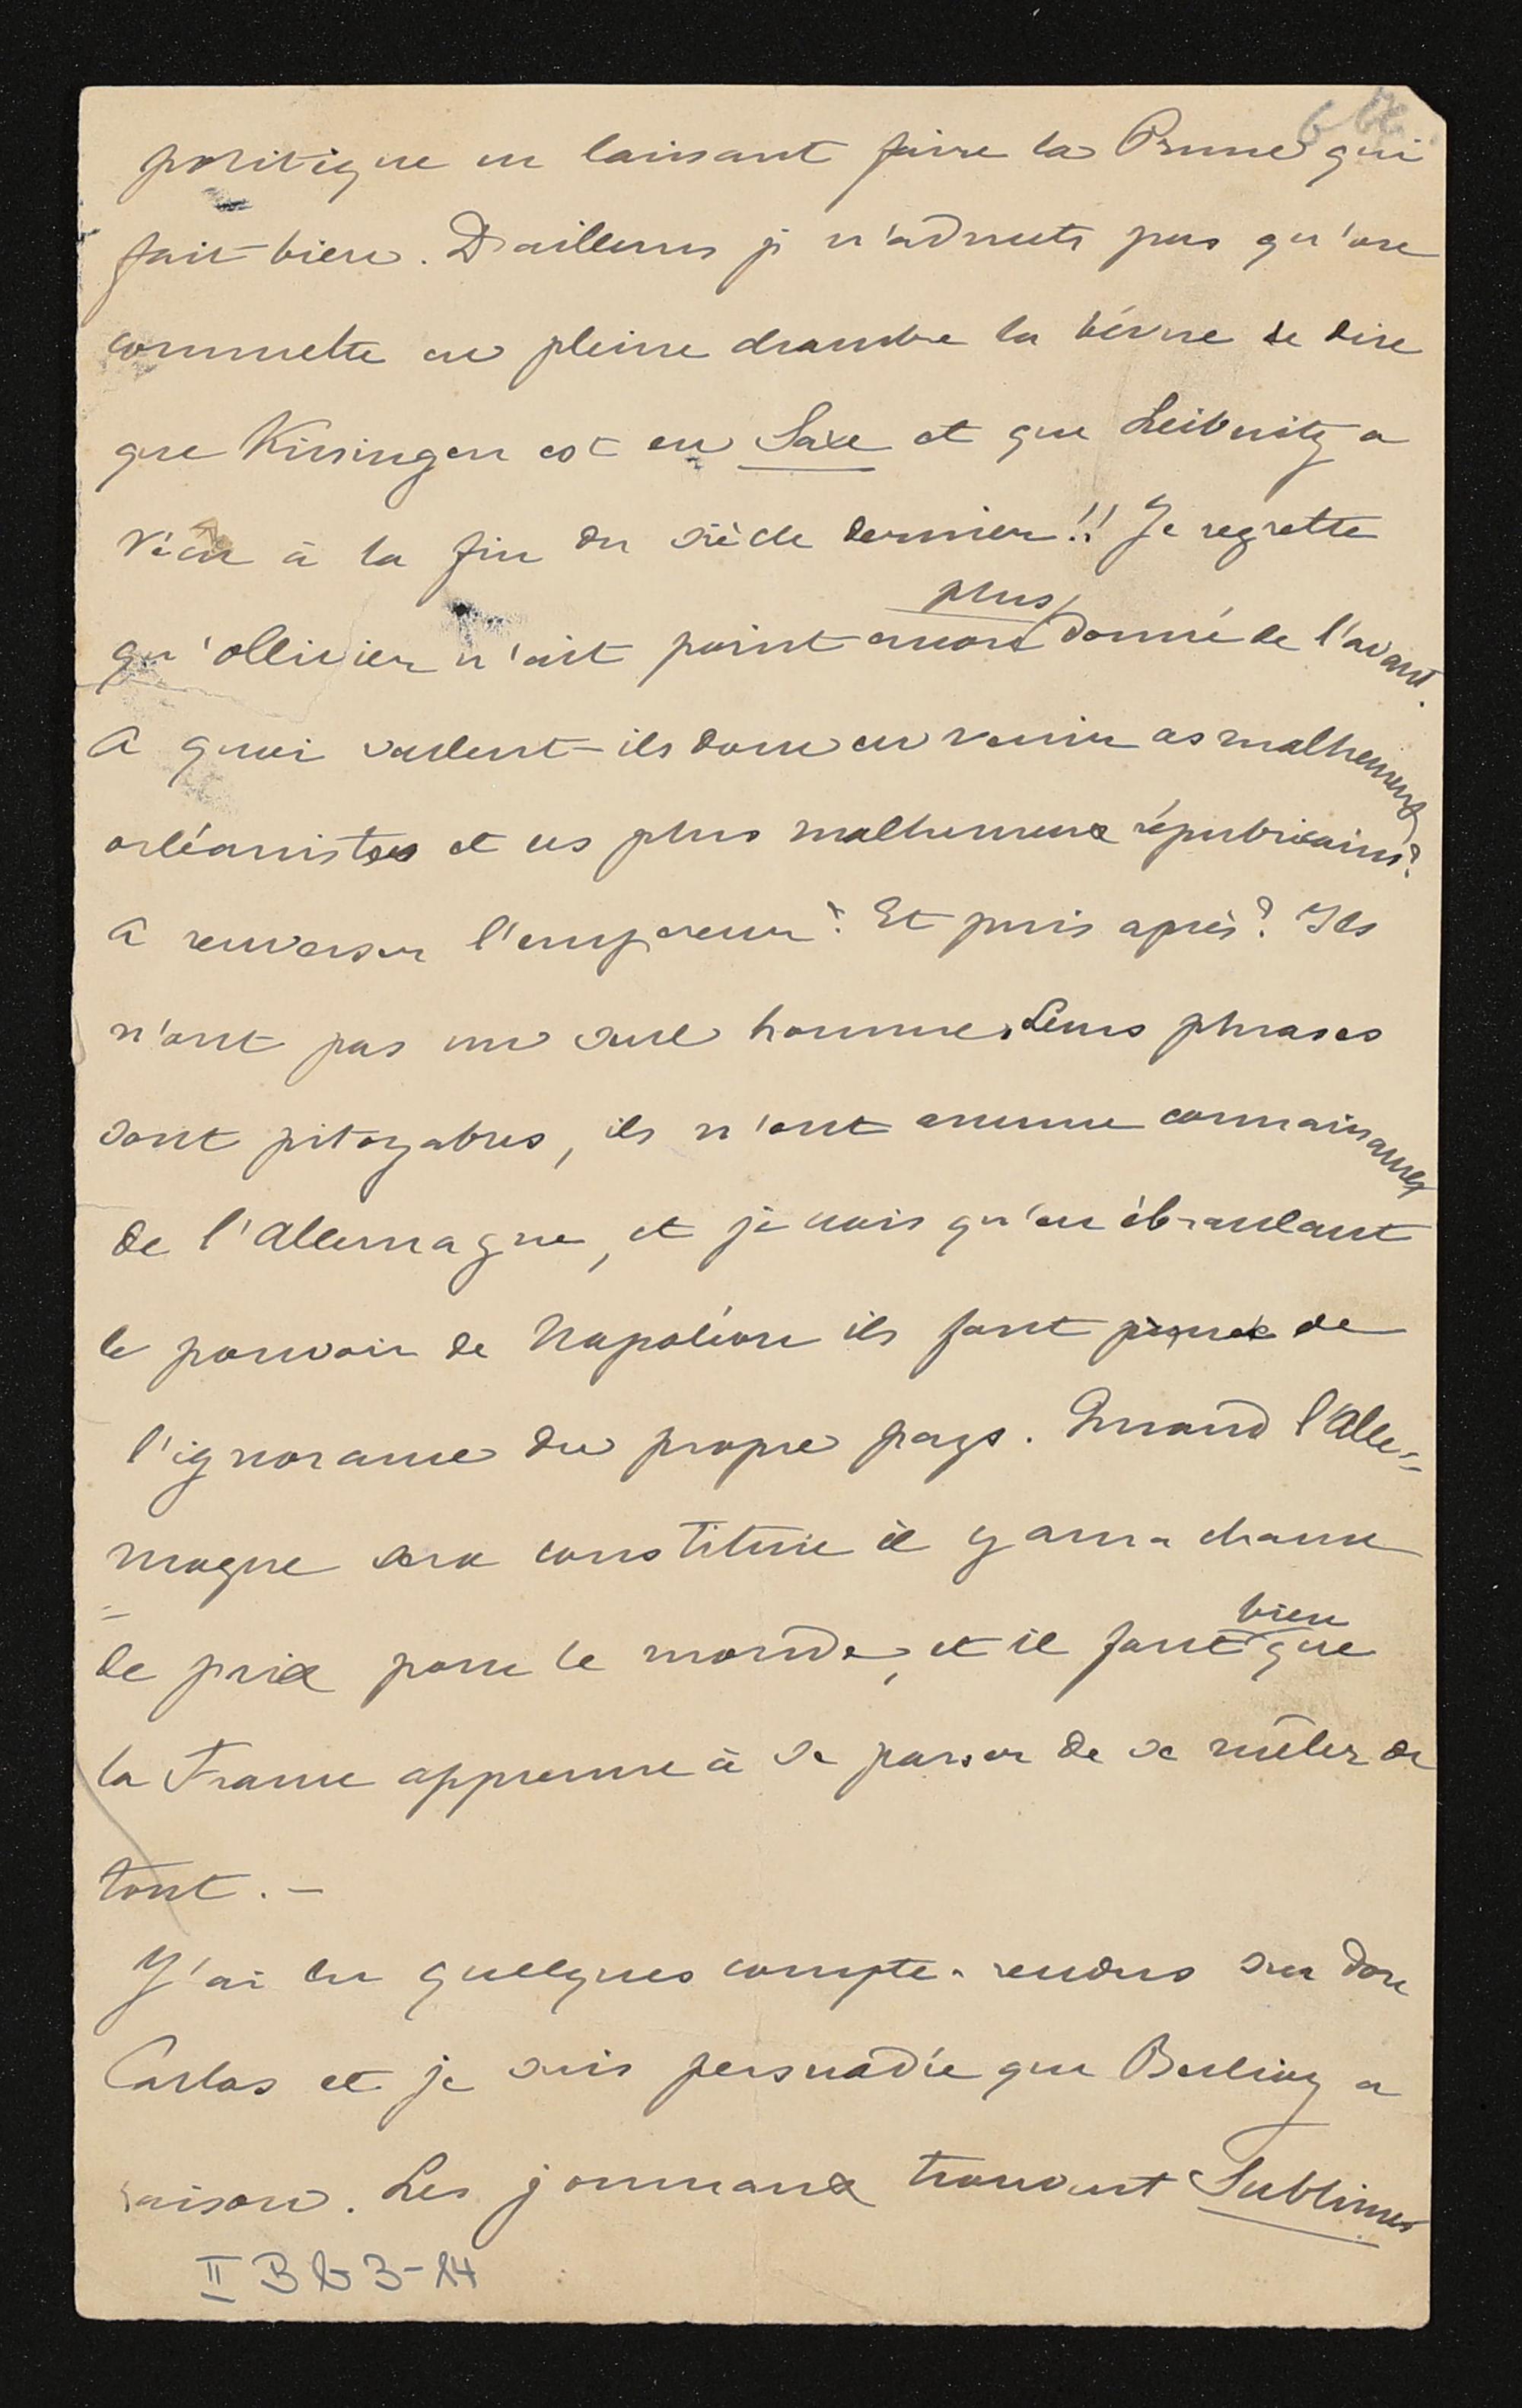 6 66
politique en laissant faire la Prusse qui
fait bien. D'ailleurs je n'admets pas qu'on
commette en pleine chambre la bévue de dire
que Kissingen est en Saxe et que Leibnitz a
vécu à la fin du siècle dernier!! Je regrette
plus
qu'ollivier n'ait point encore donné de l'avant.
A quoi veulent-ils donc en venir ces malheureux
orléanistes et ces plus malheureux républicains?
A renverser l'empereur? Et puis après? Ils
n'ont pas un seul homme, Leurs phrases
sont pitoyables, ils n'ont aucune connaissance
de l'Allemagne, et je crois qu'en ébranlant
le pouvoir de Napoléon ils font preuve de
l'ignorance du propre pays. Quand l'Alle=
=magne sera constituée il y aura chance
bien
de paix pour le monde, et il faut que
la France apprenne à se passer de se mêler de
tout. —
J'ai lu quelques compte-rendus sur Don
Carlos et je suis persuadée que Berlioz a
raison. Les journaux trouvent Sublimes
II B b 3-14